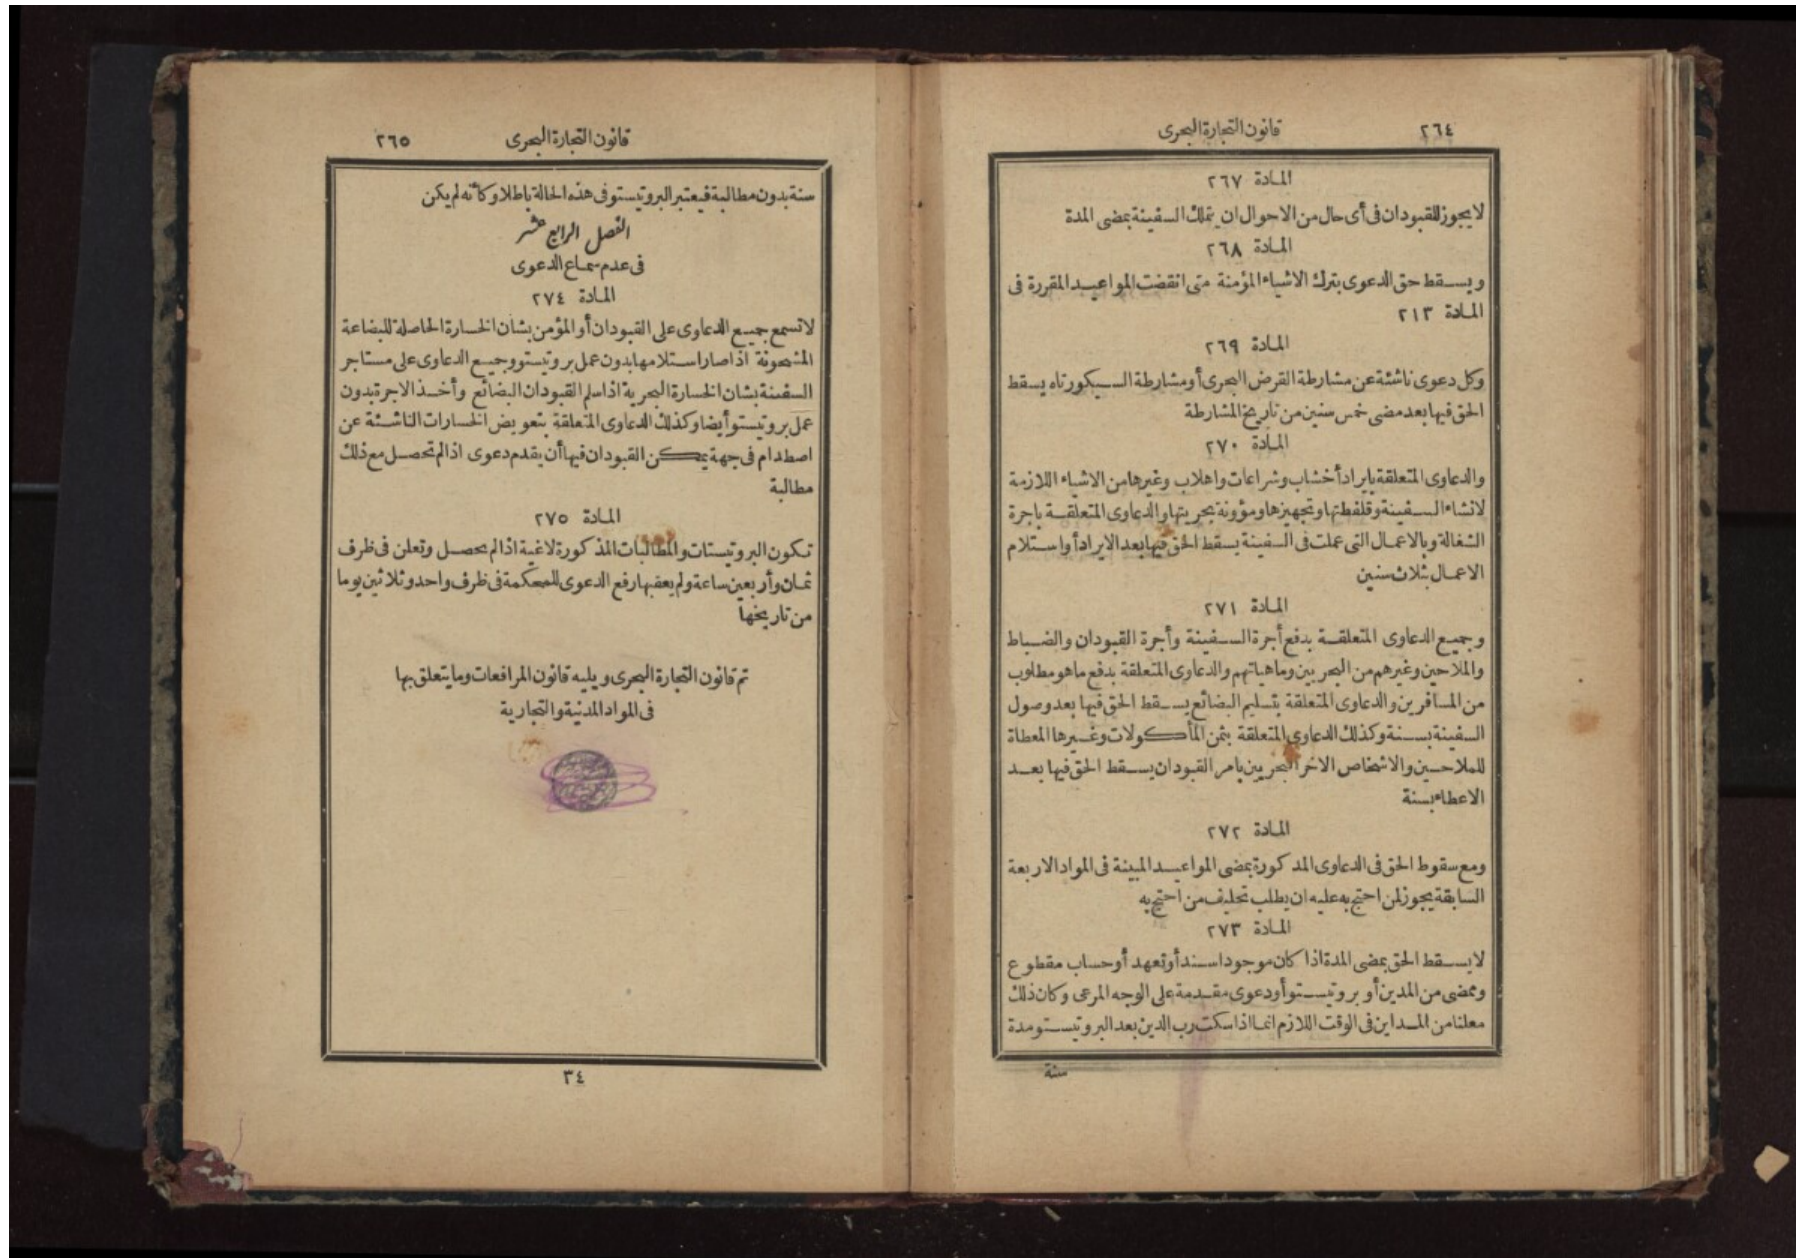 ٢٦٤
قانون التجارة البحرى
المادة ٢٦٧
لا يجوز للقبودان فى أى حال من الاحوال ان يتملك السفينة بمضى المدة
المادة ٢٦٨
ويسقط حق الدعوى بترك الاشياء المؤمنة متى انقضت المواعيد المقررة فى
المادة ٢١٣
المادة ٢٦٩
وكل دعوى ناشئة عن مشارطة القرض البحرى أو مشارطة السيكورتاه يسقط
الحق فيها بعد مضى خمس سنين من تاريخ المشارطة
المادة ٢٧٠
والدعاوى المتعلقة بايراد أخشاب وشراعات واهلاب وغيرها من الاشياء اللازمة
لانشاء السفينة وقلفطتها وتجهيزها ومؤونة بحريتها والدعاوى المتعلقة باجرة
الشغالة وبالاعمال التى عملت فى السفينة يسقط الحق فيها بعد الايراد أو استلام
الاعمال بثلاث سنين
المادة ٢٧١
وجميع الدعاوى المتعلقة بدفع أجرة السفينة وأجرة القبودان والضباط
والملاحين وغيرهم من البحريين وماهياتهم والدعاوى المتعلقة بدفع ماهو مطلوب
من المسافرين والدعاوى المتعلقة بتسليم البضائع يسقط الحق فيها بعد وصول
السفينة بسنة وكذلك الدعاوى المتعلقة بثمن المأكولات وغيرها المعطاة
للملاحين والاشخاص الاخر البحريين بامر القبودان يسقط الحق فيها بعد
الاعطاء بسنة
المادة ٢٧٢
ومع سقوط الحق فى الدعاوى المذكورة بمضى المواعيد المبينة فى المواد الاربعة
السابقة يجوز لمن احتج به عليه ان يطلب تحليف من احتج به
المادة ٢٧٣
لا يسقط الحق بمضى المدة اذا كان موجودا سند أو تعهد أو حساب مقطوع
وممضى من المدين أو بروتيستو أو دعوى مقدمة على الوجه المرعى وكان ذلك
معلنا من المداين فى الوقت اللازم انما اذا سكت رب الدين بعد البروتيستو مدة
سنة
قانون التجارة البحرى
٢٦٥
سنة بدون مطالبة فيعتبر البروتيستو فى هذه الحالة باطلا وكأنه لم يكن
الفصل الرابع عشر
فى عدم سماع الدعوى
المادة ٢٧٤
لا تسمع جميع الدعاوى على القبودان أو المؤمن بشان الخسارة الحاصلة للبضاعة
المشحونة اذا صار استلامها بدون عمل بروتيستو وجميع الدعاوى على مستاجر
السفينة بشان الخسارة البحرية اذا سلم القبودان البضائع وأخذ الاجرة بدون
عمل بروتيستو أيضا وكذلك الدعاوى المتعلقة بتعويض الخسارات الناشئة عن
اصطدام فى جهة يمكن القبودان فيها أن يقدم دعوى اذا لم تحصل مع ذلك
مطالبة
المادة ٢٧٥
تكون البروتيستات والمطالبات المذكورة لاغية اذا لم تحصل وتعلن فى ظرف
ثمان وأربعين ساعة ولم يعقبها رفع الدعوى للمحكمة فى ظرف واحد وثلاثين يوما
من تاريخها
تم قانون التجارة البحرى ويليه قانون المرافعات وما يتعلق بها
فى المواد المدنية والتجارية
٣٤